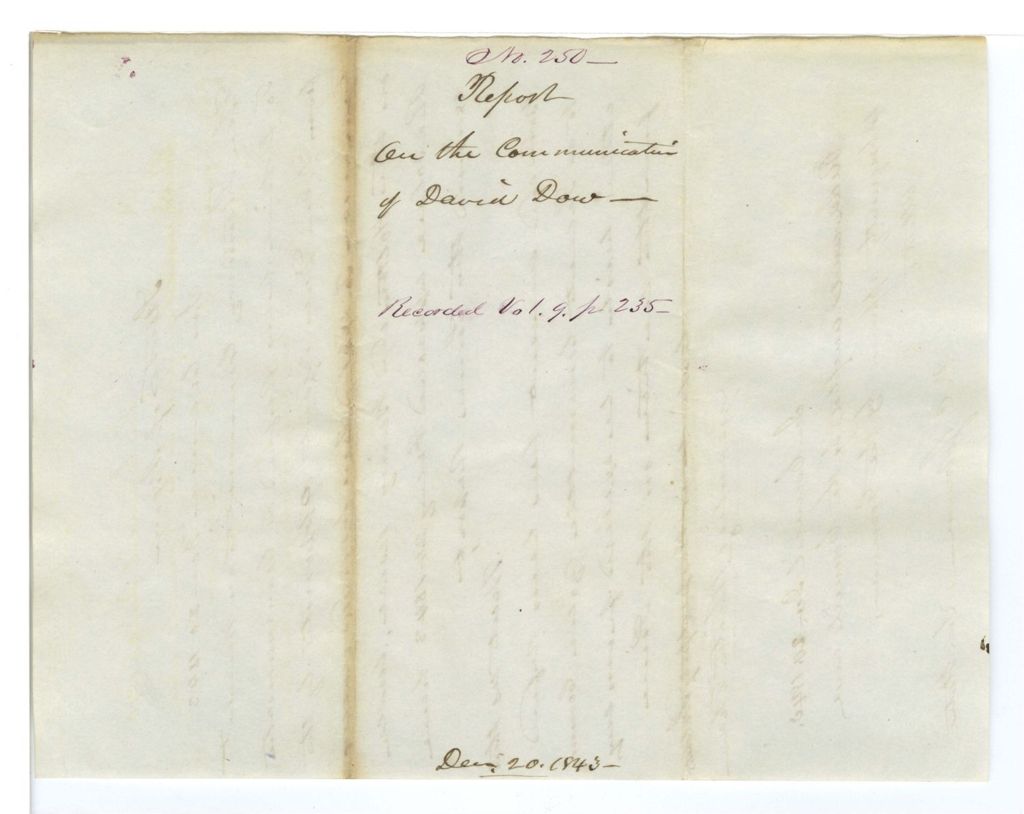 No. 250—
Report
On the Communication
of David Dow—
Recorded Vol. 9. p. 235—
Dec. 20. 1843—